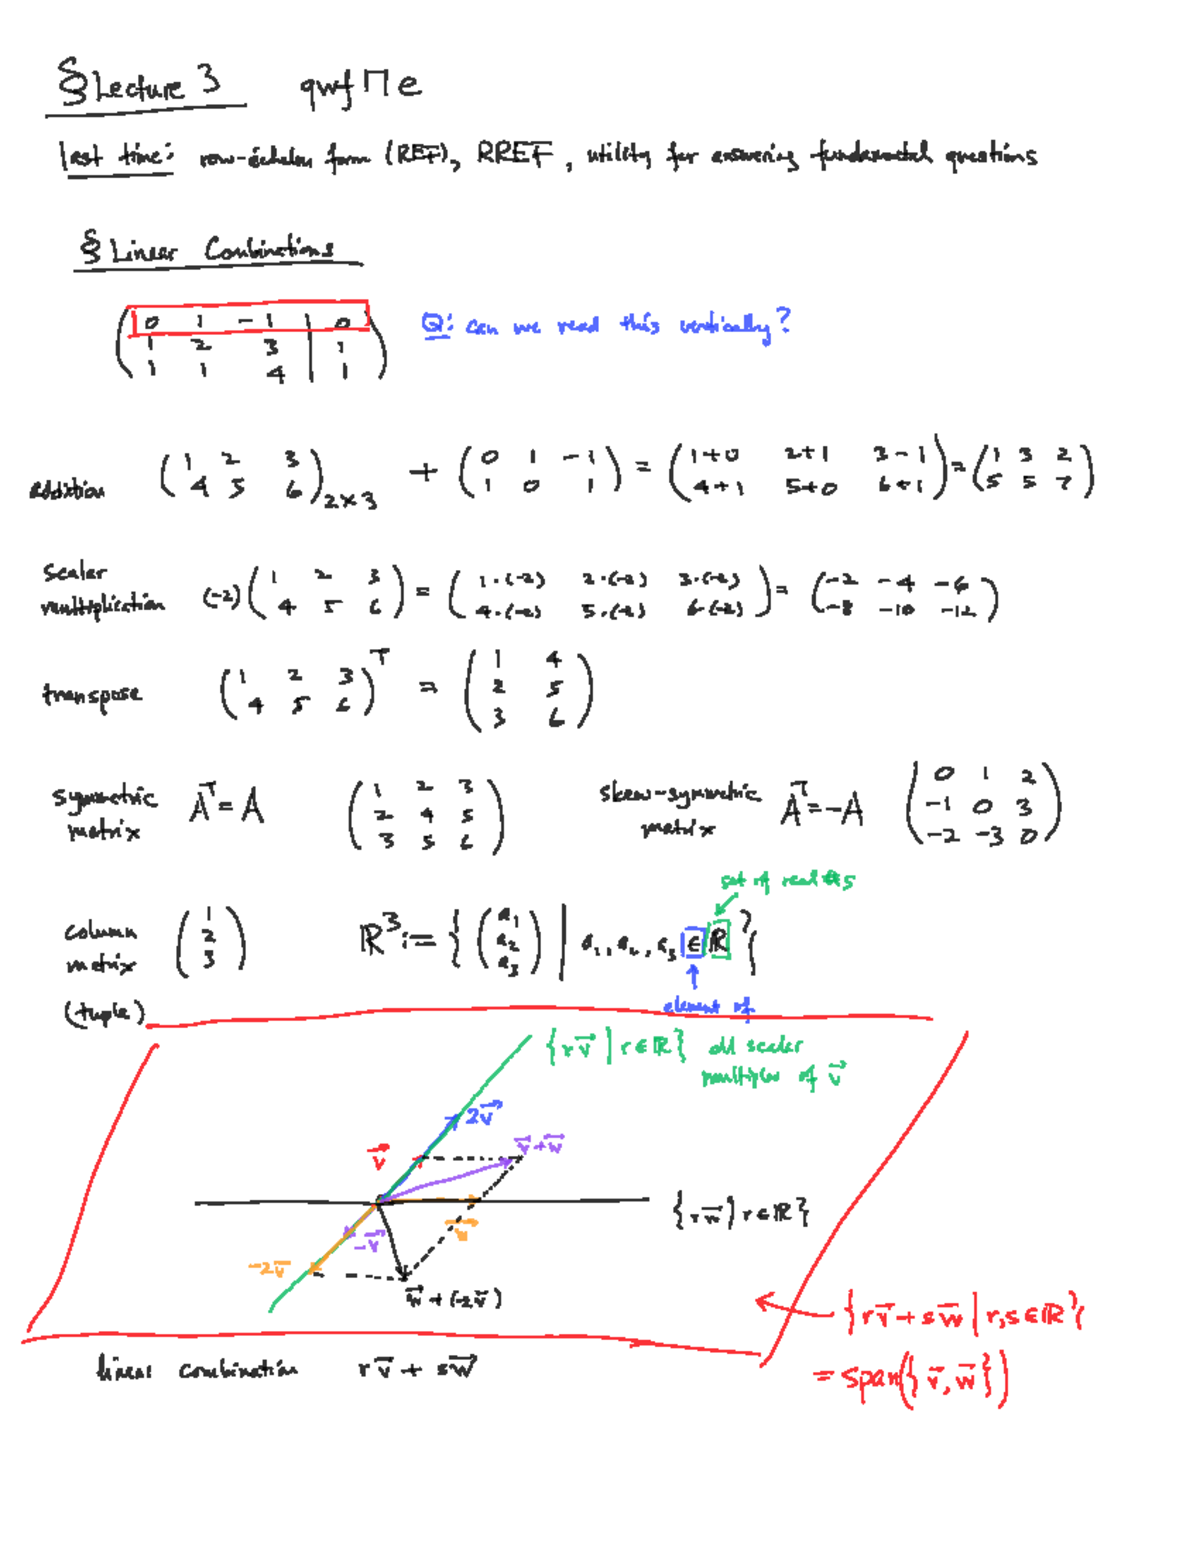 § Lecture 3 qwf∏e
last time: row-echelon form (REF), RREF, utility for answering fundamental questions
§ Linear Combinations
( 0 1 -1 | 0
1 2 3 | 1
1 1 4 | 1 )
Q: can we read this vertically?
addition ( 1 2 3
4 5 6 )2×3 + ( 0 1 -1
1 0 1 ) = ( 1+0 2+1 3-1
4+1 5+0 6+1 ) = ( 1 3 2
5 5 7 )
scalar
multiplication (-2) ( 1 2 3
4 5 6 ) = ( 1·(-2) 2·(-2) 3·(-2)
4·(-2) 5·(-2) 6·(-2) ) = ( -2 -4 -6
-8 -10 -12 )
transpose ( 1 2 3
4 5 6 )ᵀ = ( 1 4
2 5
3 6 )
symmetric
matrix Aᵀ = A ( 1 2 3
2 4 5
3 5 6 )
skew-symmetric
matrix Aᵀ = -A ( 0 1 2
-1 0 3
-2 -3 0 )
set of real #s
column
matrix
(tuple) ( 1
2
3 )
ℝ³ := { ( a₁
a₂
a₃ ) | a₁, a₂, a₃ ∈ ℝ }
element of
{ r v⃗ | r ∈ ℝ } all scalar
multiples of v⃗
2v⃗
v⃗
v⃗+w⃗
{ r w⃗ | r ∈ ℝ }
w⃗
-v⃗
-2v⃗
w⃗ + (-2v⃗)
{ r v⃗ + s w⃗ | r,s ∈ ℝ }
linear combination r v⃗ + s w⃗
= span({ v⃗, w⃗ })